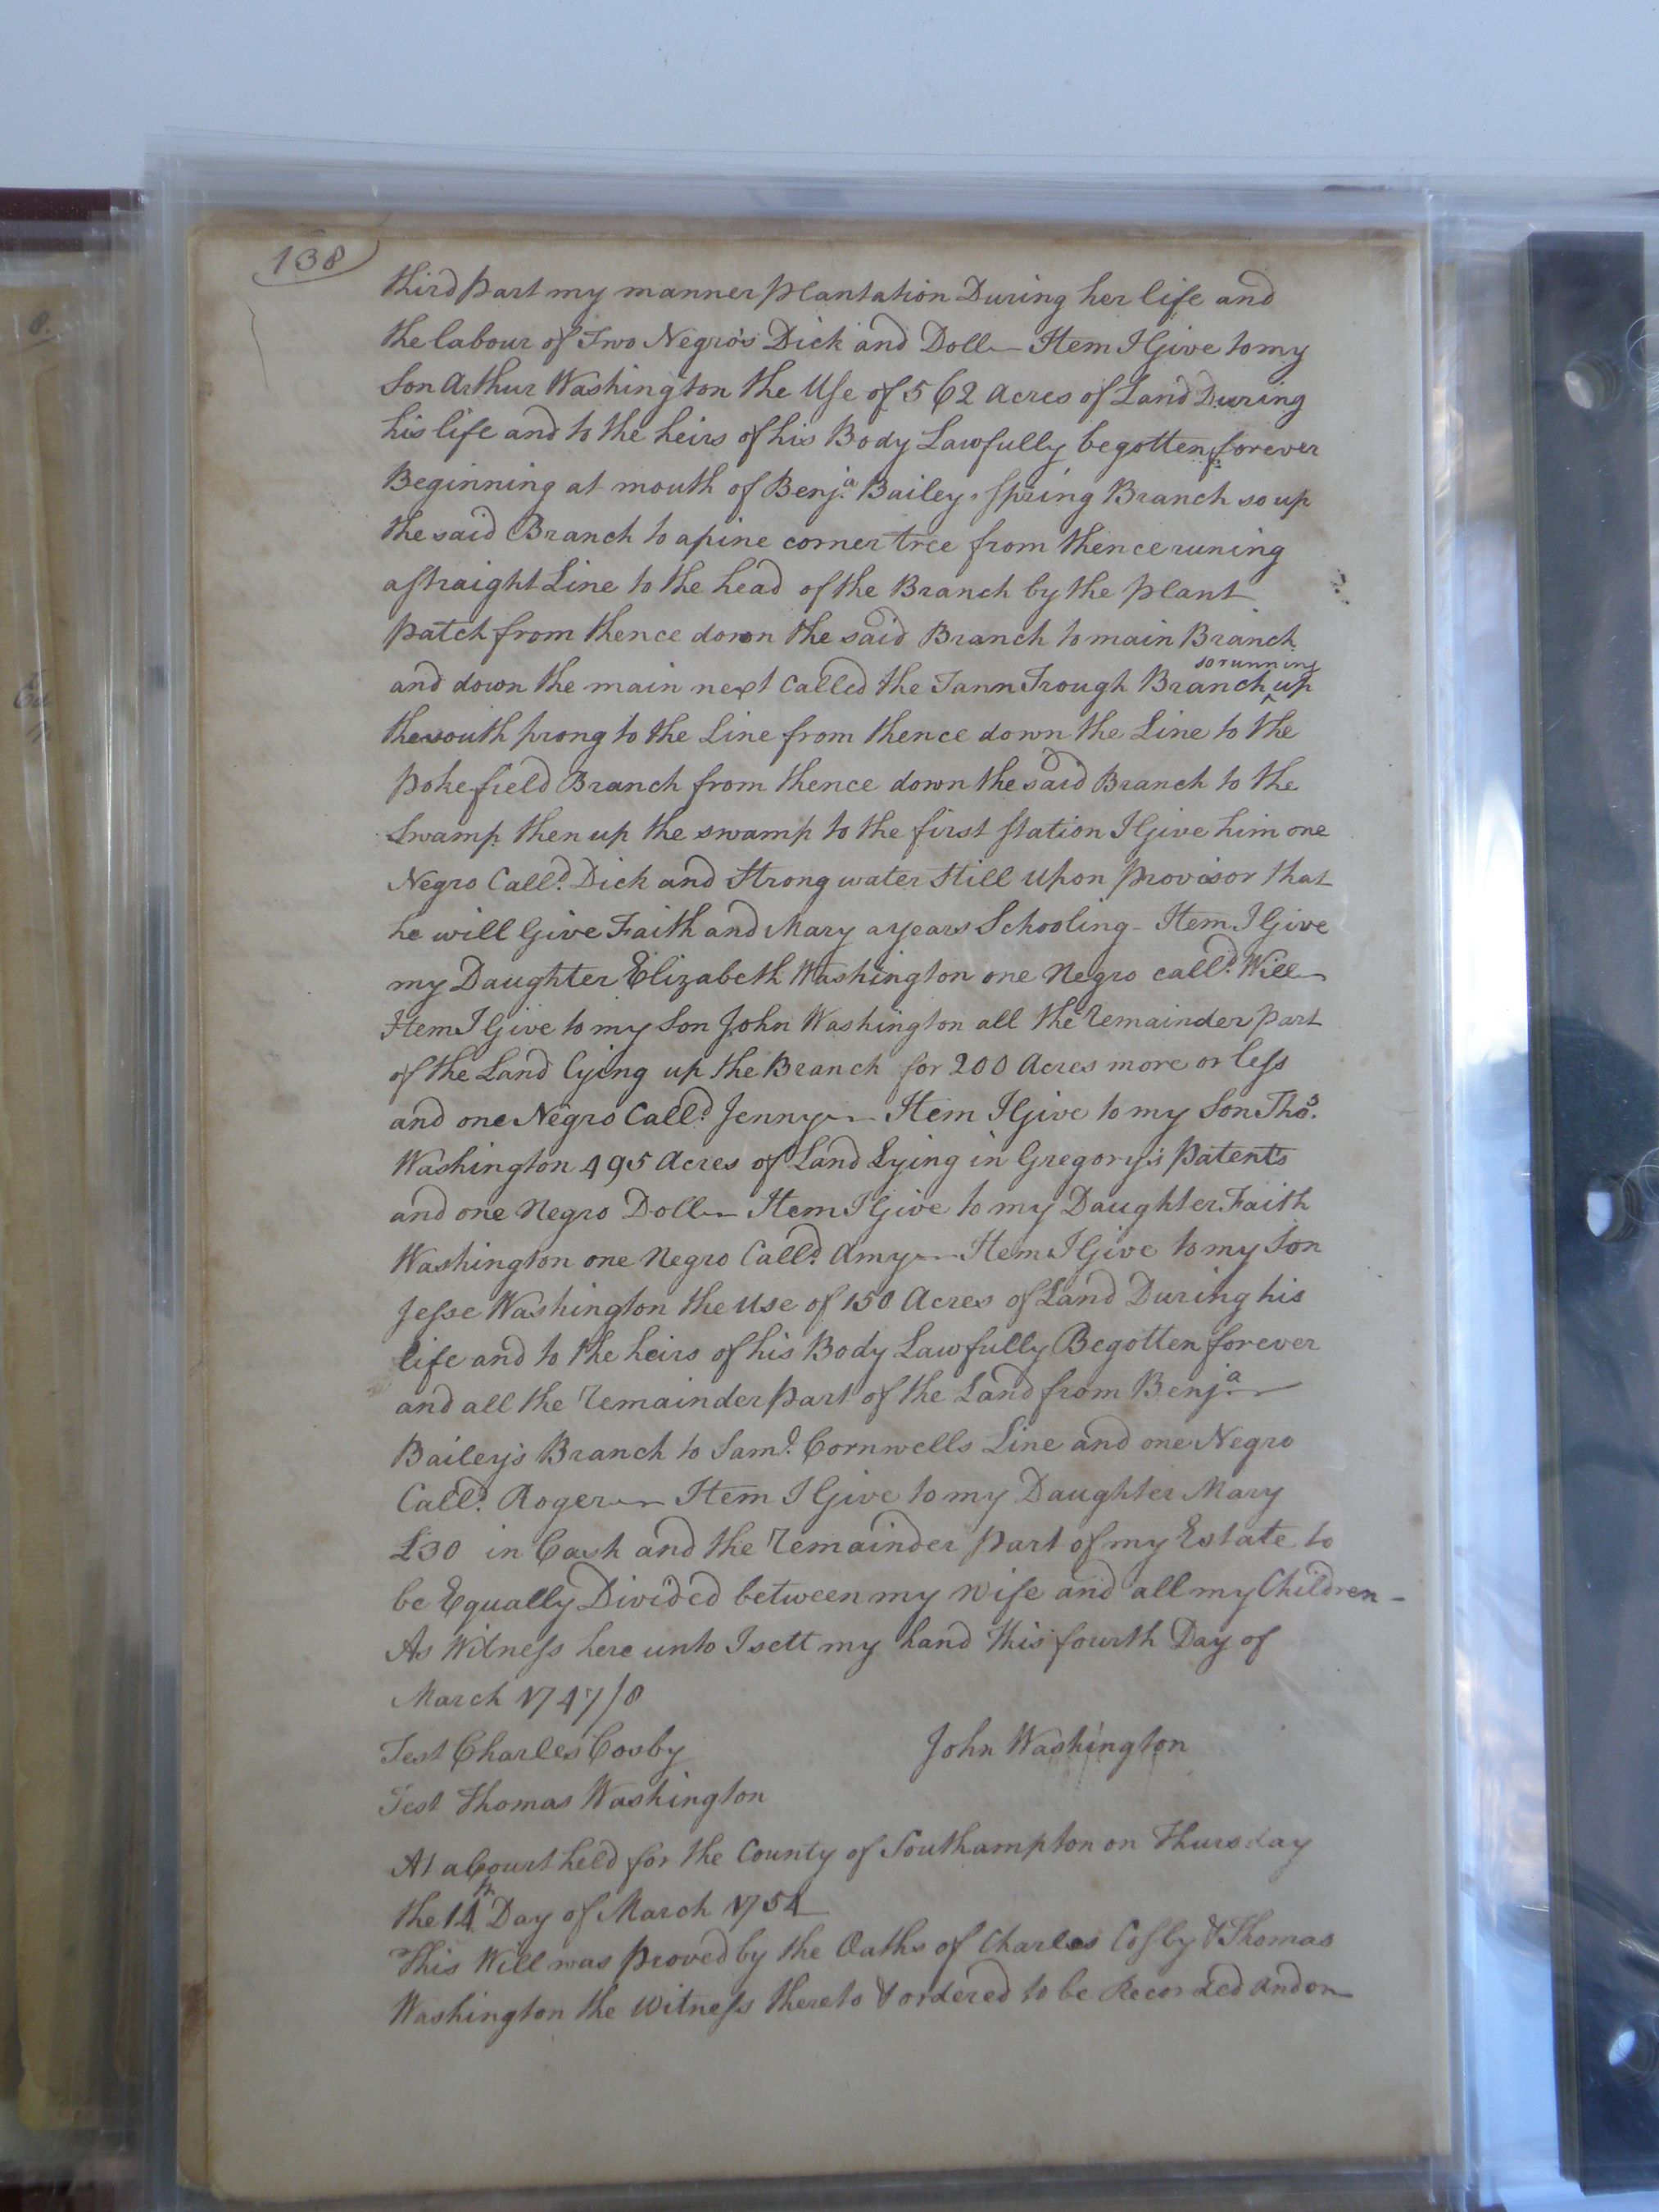 138
third part my manner plantation During her life and
the labour of Two Negro's Dick and Doll Item I Give to my
Son Arthur Washington the Use of 562 Acres of Land During
his life and to the heirs of his Body Lawfully begotten forever
Beginning at mouth of Benja. Bailey's spring Branch so up
the said Branch to a pine corner tree from thence runing
a straight Line to the head of the Branch by the plant
patch from thence down the said Branch to main Branch
and down the main next Called the Tann Trough Branch so running up
the south prong to the Line from thence down the Line to the
poke field Branch from thence down the said Branch to the
Swamp then up the swamp to the first station I Give him one
Negro Calld. Dick and Strong water Still upon provisor that
he will Give Faith and Mary a years Schooling - Item I Give
my Daughter Elizabeth Washington one Negro calld. Will
Item I Give to my Son John Washington all the remainder part
of the Land lying up the Branch for 200 Acres more or less
and one Negro Calld. Jenny Item I Give to my Son Thos.
Washington 495 Acres of Land Lying in Gregory's patents
and one Negro Doll Item I Give to my Daughter Faith
Washington one Negro Calld. Amy Item I Give to my Son
Jesse Washington the Use of 150 Acres of Land During his
life and to the heirs of his Body Lawfully Begotten forever
and all the remainder part of the Land from Benja.
Bailey's Branch to Saml. Cornwells Line and one Negro
Calld. Roger Item I Give to my Daughter Mary
£30 in Cash and the remainder part of my Estate to
be Equally Divided between my wife and all my Children -
As Witness here unto I sett my hand this fourth Day of
March 1747/8
Test Charles Cosby John Washington
Test Thomas Washington
At a Court held for the County of Southampton on Thursday
the 14th Day of March 1754
This Will was proved by the Oaths of Charles Cosby & Thomas
Washington the Witness thereto & ordered to be Recorded and on